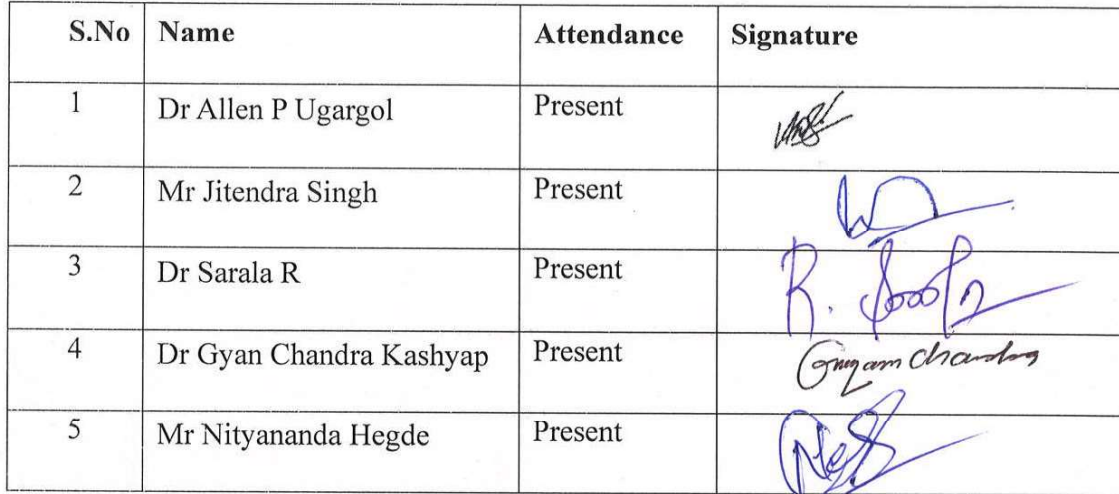 S.No Name Attendance Signature
1 Dr Allen P Ugargol Present
2 Mr Jitendra Singh Present
3 Dr Sarala R Present R.
4 Dr Gyan Chandra Kashyap Present Gnyam Chandra
5 Mr Nityananda Hegde Present